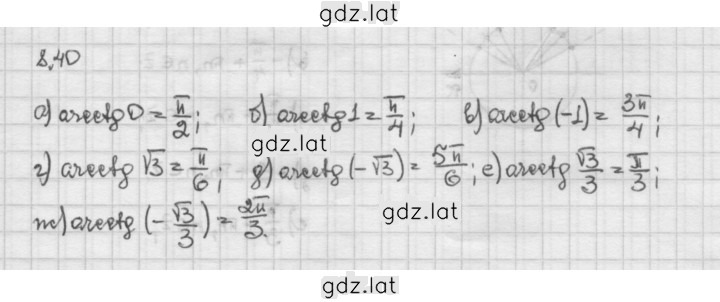 gdz.lat
8.40
а) arcctg 0 = π/2; б) arcctg 1 = π/4; в) arcctg (-1) = 3π/4;
gdz.lat
г) arcctg √3 = π/6; д) arcctg (-√3) = 5π/6; е) arcctg √3/3 = π/3;
ж) arcctg (-√3/3) = 2π/3.
gdz.lat
gdz.lat